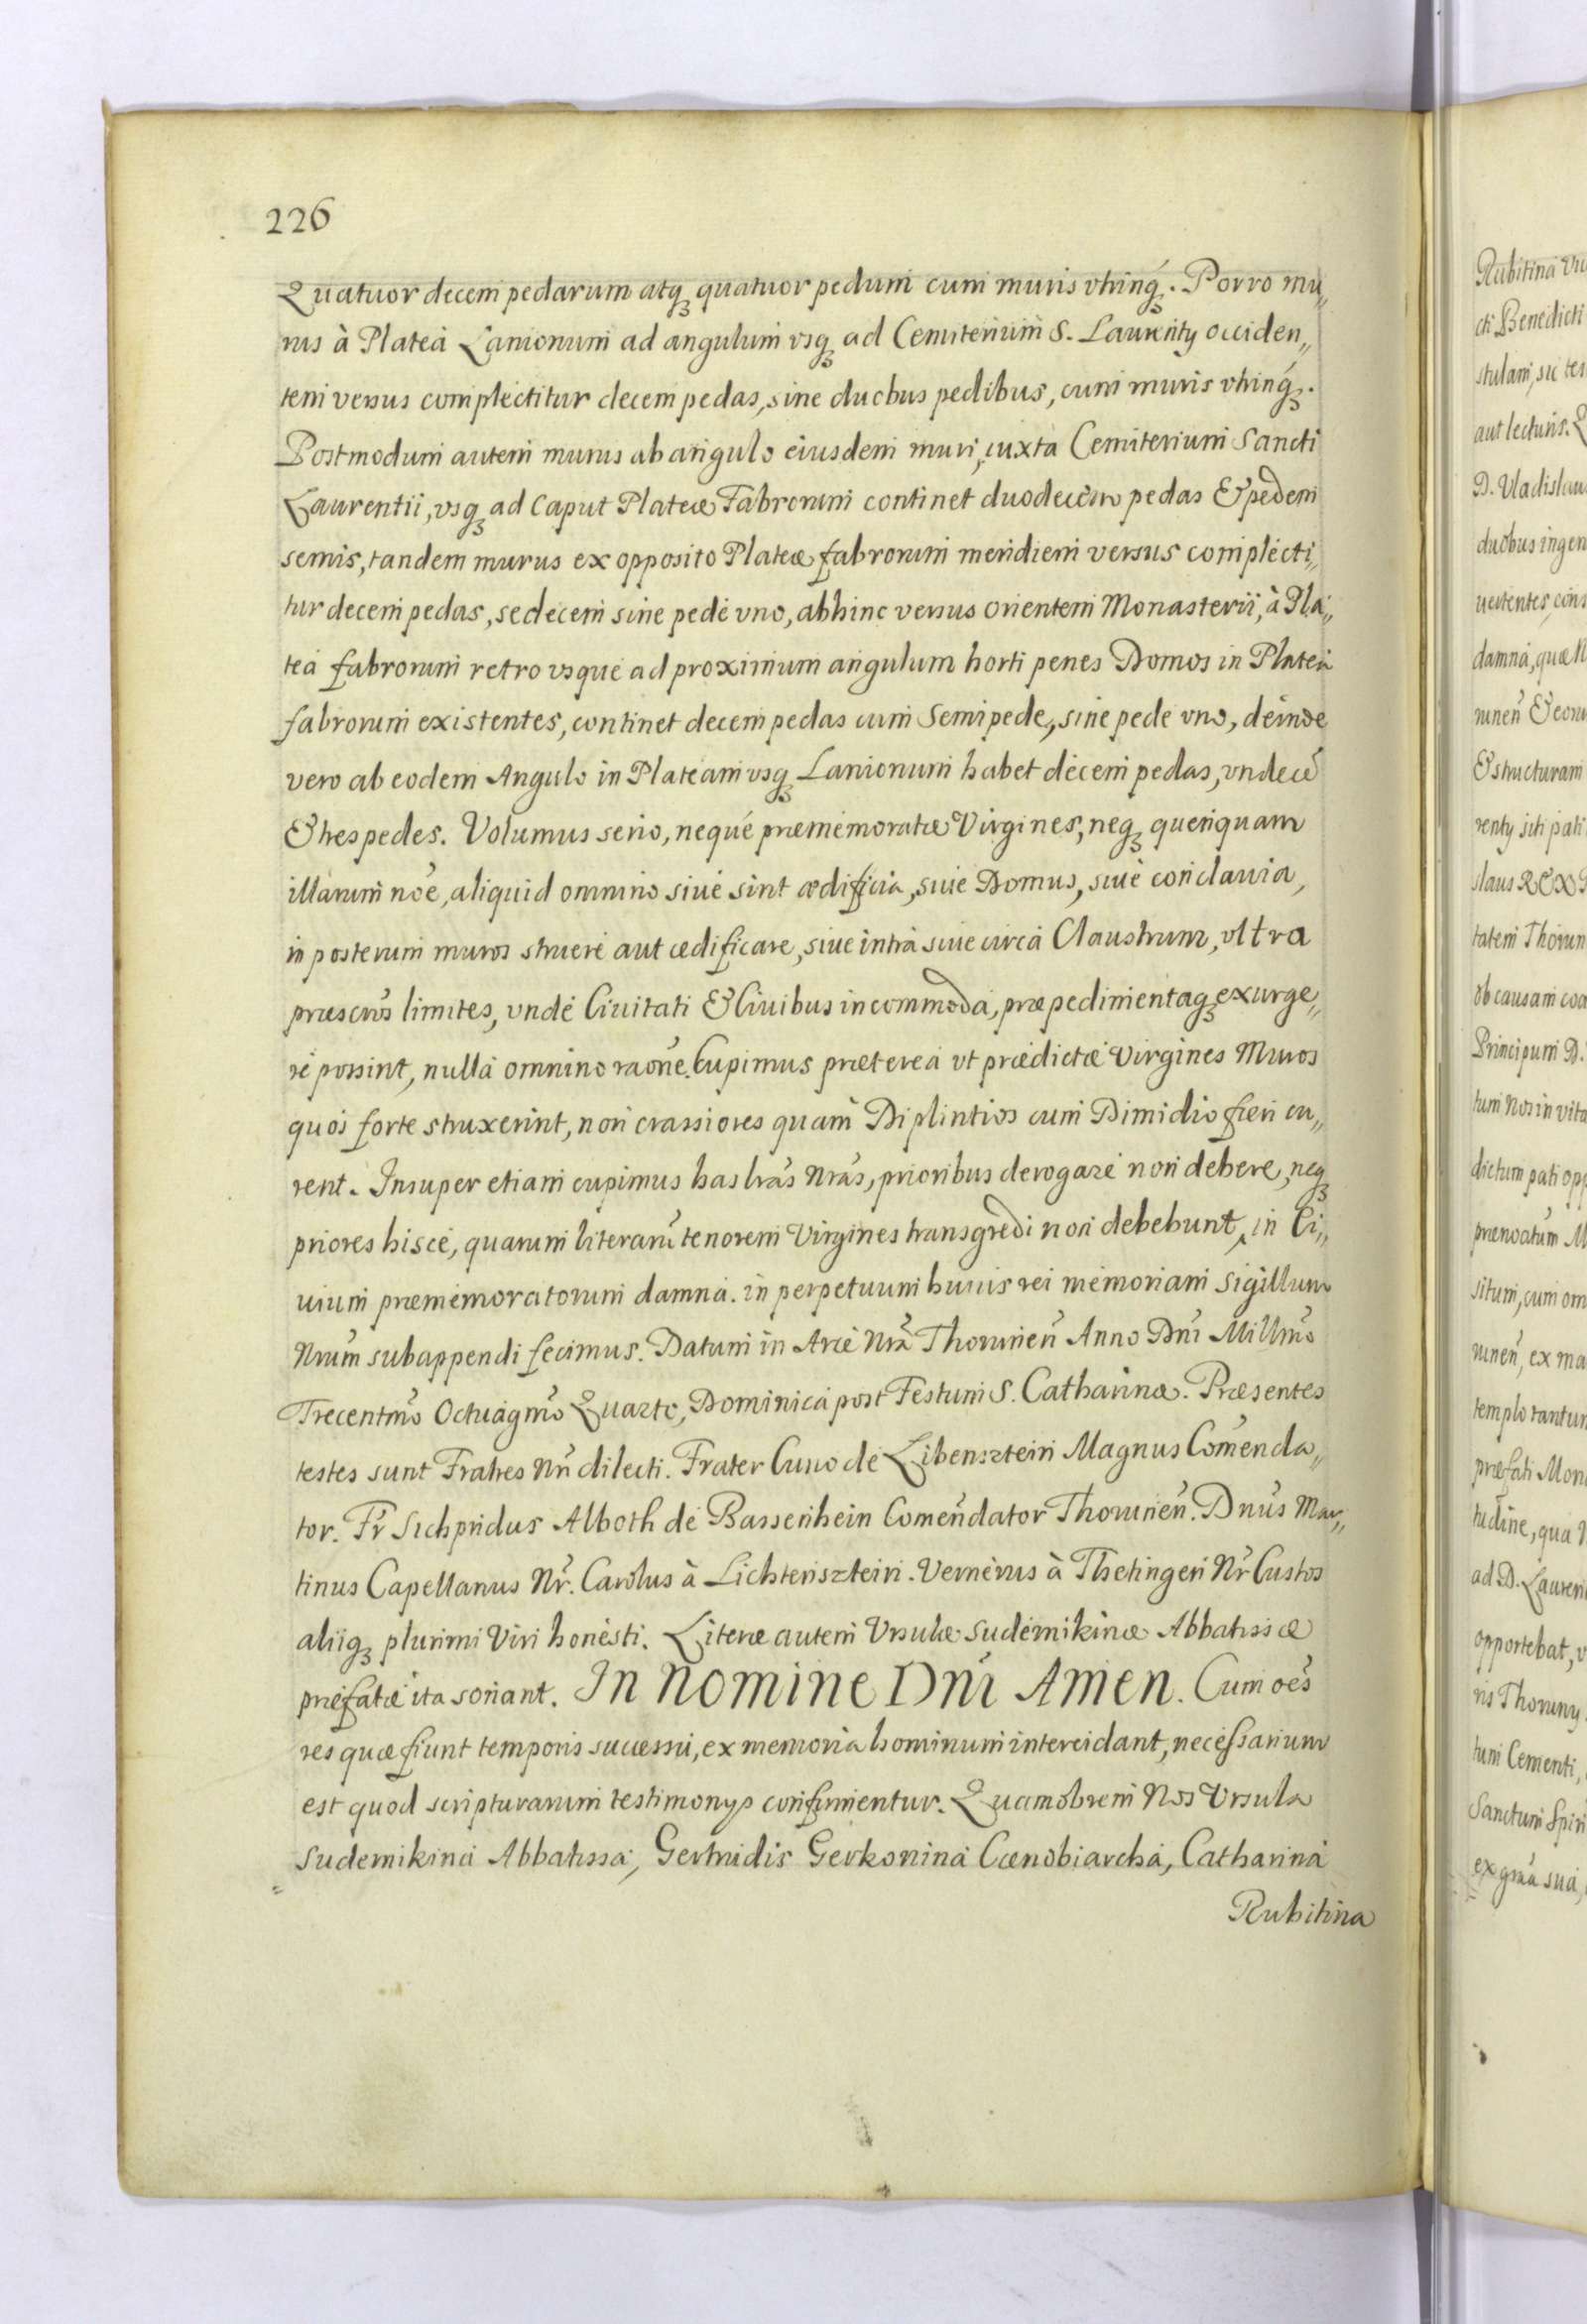 226
Quatuor decem pedarum atq́ꝫ quatuor pedum cum muris vtrinq́ꝫ. Porro mu„
rus à Platea Lanionum ad angulum vsqꝫ ad Cemiterium S. Laurentÿ occiden„
tem versus complectitur decem pedas, sine duobus pedibus, cum muris vtrinq́ꝫ.
Postmodum autem murus ab angulo eiusdem muri, iuxta Cemiterium Sancti
Laurentii, vsqꝫ ad Caput Plateæ Fabrorum continet duodecim pedas & pedem
semis, tandem murus ex opposito Plateæ fabrorum meridiem versus complecti„
tur decem pedas, sedecem sine pede vno, abhinc versus orientem Monasterii, à Pla„
tea fabrorum retro vsque ad proximum angulum horti penes Domos in Platea
fabrorum existentes, continet decem pedas cum Semipede, sine pede vno, deinde
vero ab eodem Angulo in Plateam vsqꝫ Lanionum habet decem pedas, vndecẽ
& tres pedes. Volumus serio, neque præmemoratæ Virgines, neqꝫ quenquam
illarum noẽ, aliquid omnino siue sint ædificia, siue Domus, siue conclauia,
in posterum muros struere aut ædificare, siue intra siue circa Claustrum, vltra
præscrõs limites, vnde Ciuitati & Ciuibus incommoda, præpedimentaqꝫ exurge„
re possint, nulla omnino raõne. Cupimus præterea vt prædictæ Virgines Muros
quos forte struxerint, non crassiores quam Diplintios cum Dimidio fieri cu„
rent. Insuper etiam cupimus has lrãs nrãs, prioribus derogare non debere, neqꝫ
priores hisce, quarum literarũ tenorem Virgines transgredi non debebunt, in Ci„
uium præmemoratorum damna. in perpetuum huius rei memoriam Sigillum
Nrũm subappendi fecimus. Datum in Arce Nrã Thorunieñ Anno Dnĩ Millmõ
Trecentmõ Octuagmõ Quarto, Dominica post Festum S. Catharinæ. Præsentes
testes sunt Fratres Nrĩ dilecti. Frater Cuno de Libensztein Magnus Comẽnda„
tor. Fr̃ Sichpridus Alboth de Bassenhein Comẽndator Thorunieñ. Dnũs Mar„
tinus Capellanus Nr̃. Carolus à Lichtensztein. Vernerus à Thetingen Nr̃ Custos
aliiqꝫ plurimi Viri honesti. Literæ autem Vrsulæ Sudernikinæ Abbatissæ
præfatæ ita sonant. In Nomine Dnĩ Amen. Cum oẽs
res quæ fiunt temporis successu, ex memoria hominum intercidant, necessarium
est quod scripturarum testimonÿs confirmentur. Quamobrem Nos Vrsula
Sudernikina Abbatissa, Gertrudis Gerkonina Cænobiarcha, Catharina
Rubitina